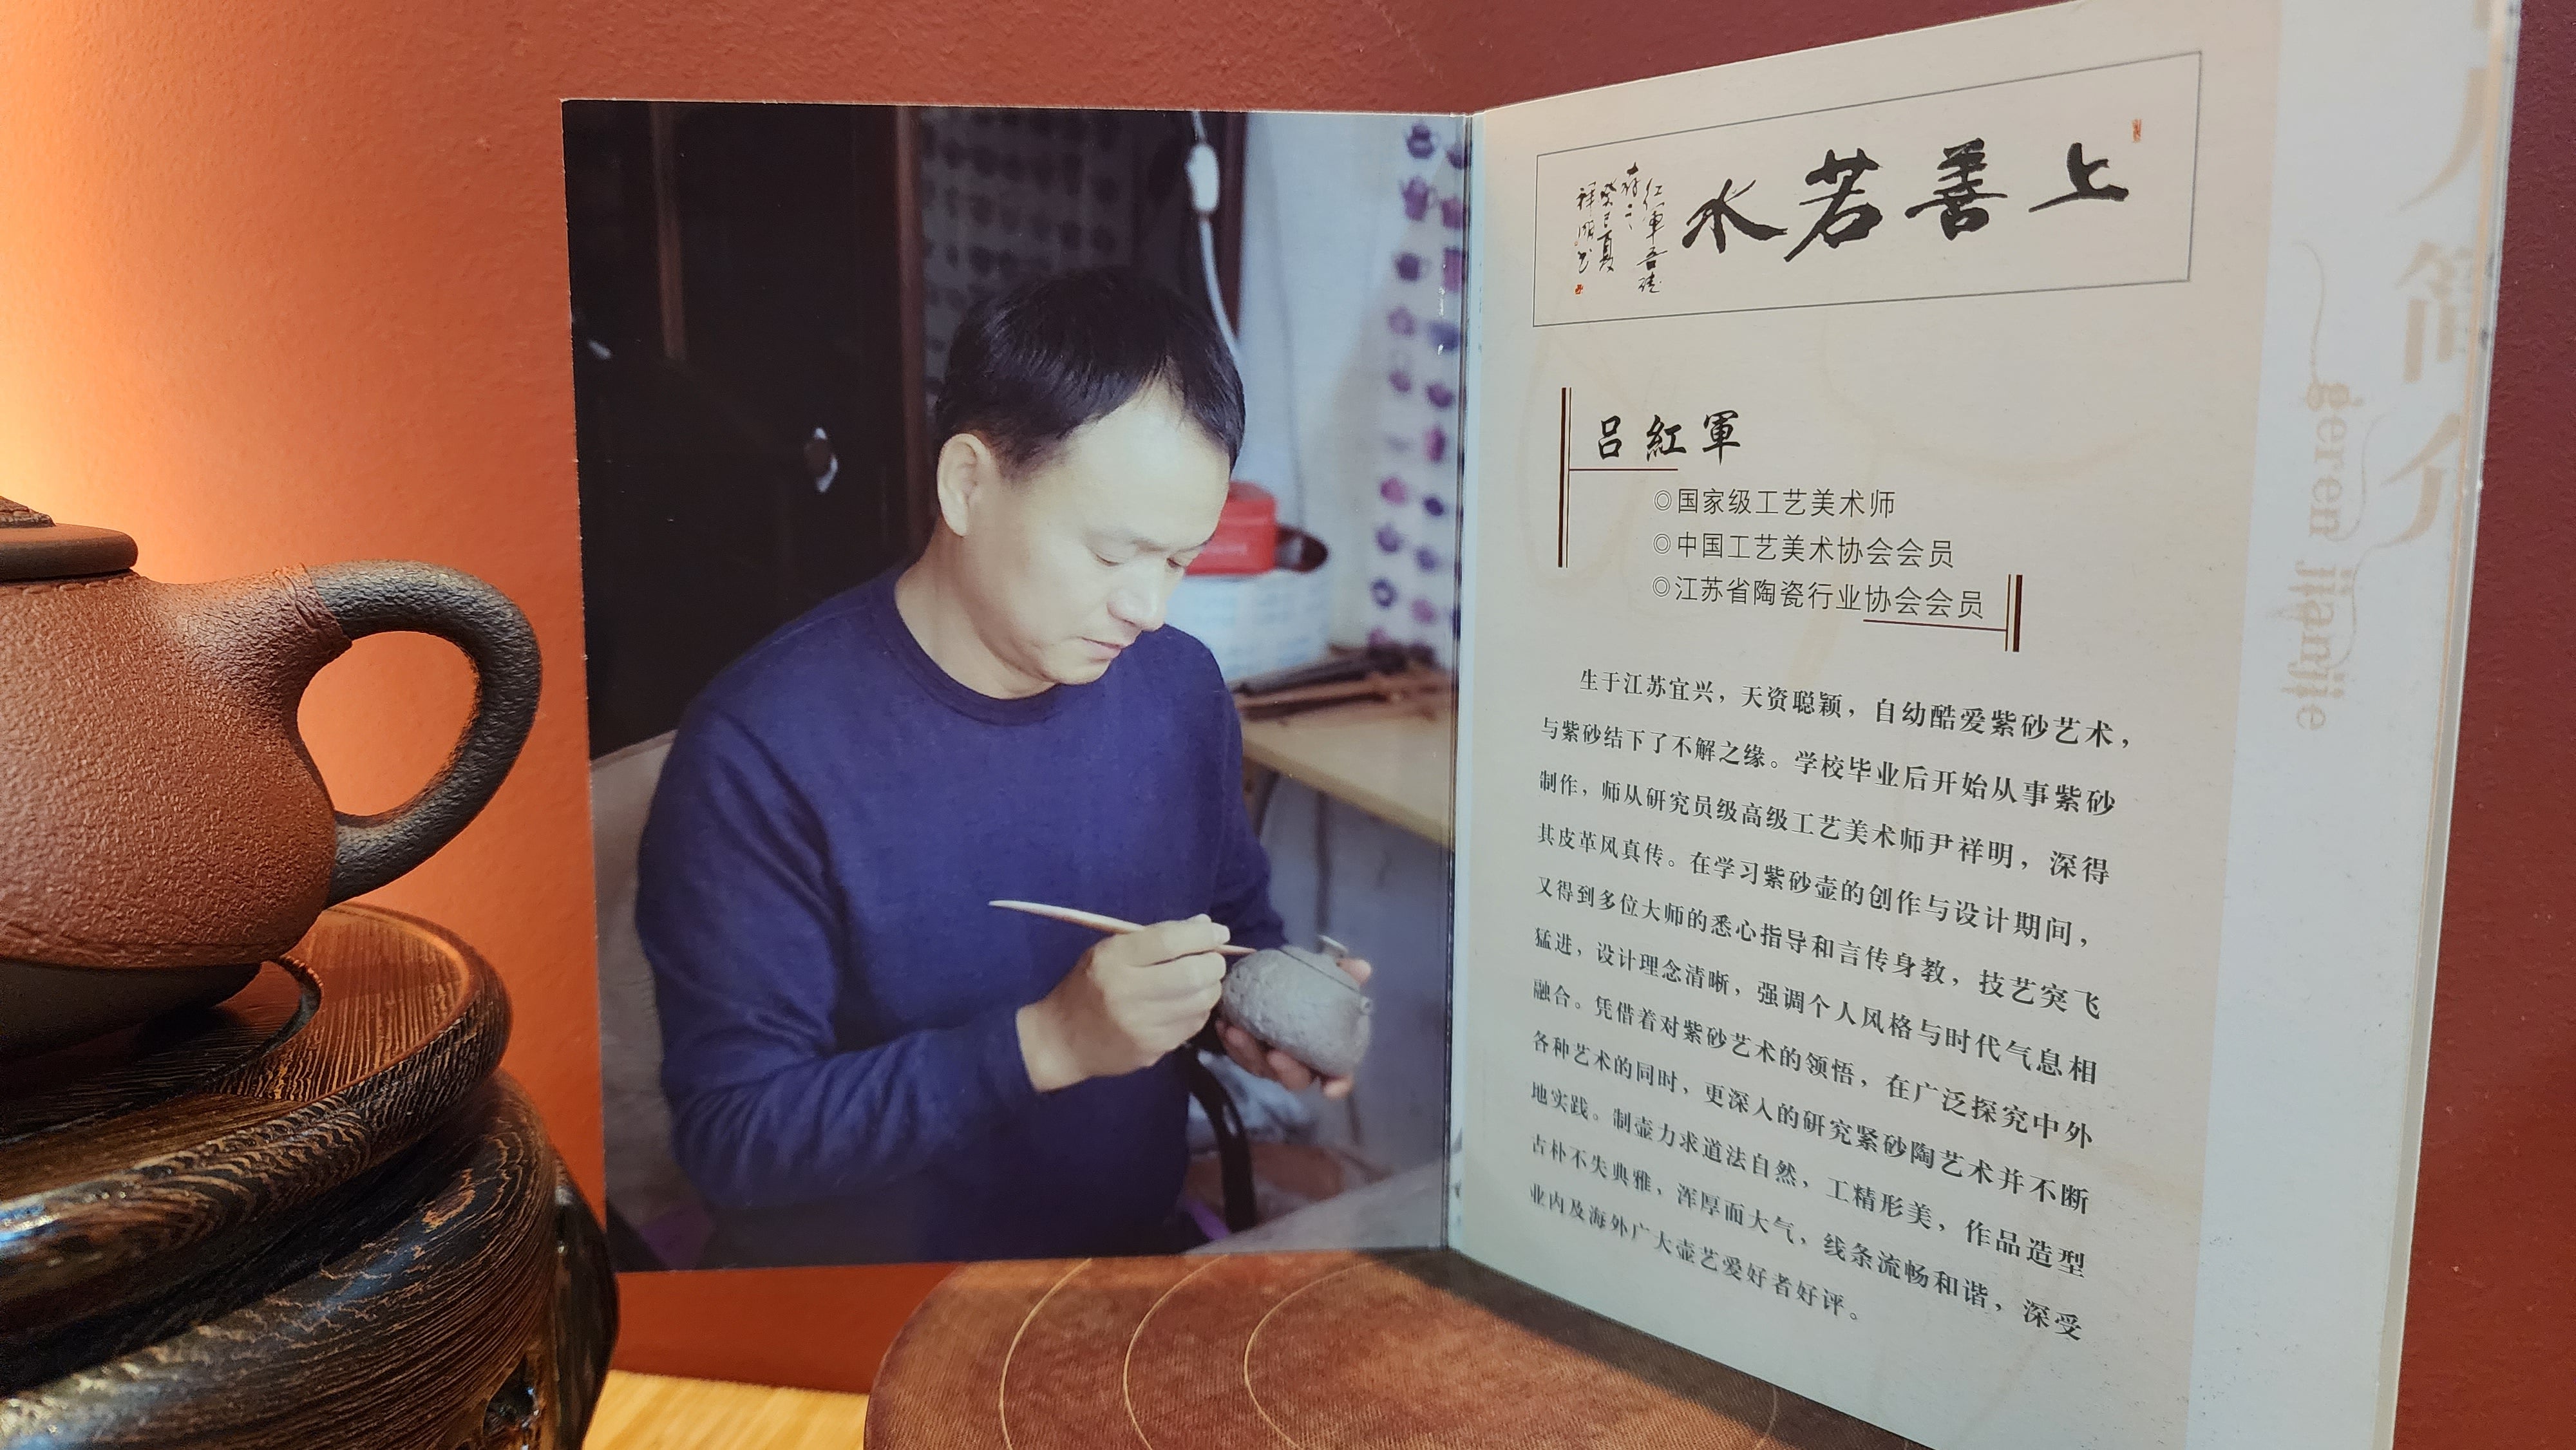 上善若水
红军吾徒
存之
癸巳夏
祥明书
吕紅軍
◎国家级工艺美术师
◎中国工艺美术协会会员
◎江苏省陶瓷行业协会会员
生于江苏宜兴，天资聪颖，自幼酷爱紫砂艺术，
与紫砂结下了不解之缘。学校毕业后开始从事紫砂
制作，师从研究员级高级工艺美术师尹祥明，深得
其皮革风真传。在学习紫砂壶的创作与设计期间，
又得到多位大师的悉心指导和言传身教，技艺突飞
猛进，设计理念清晰，强调个人风格与时代气息相
融合。凭借着对紫砂艺术的领悟，在广泛探究中外
各种艺术的同时，更深入的研究紧砂陶艺术并不断
地实践。制壶力求道法自然，工精形美，作品造型
古朴不失典雅，浑厚而大气，线条流畅和谐，深受
业内及海外广大壶艺爱好者好评。
简介
geren jianjie